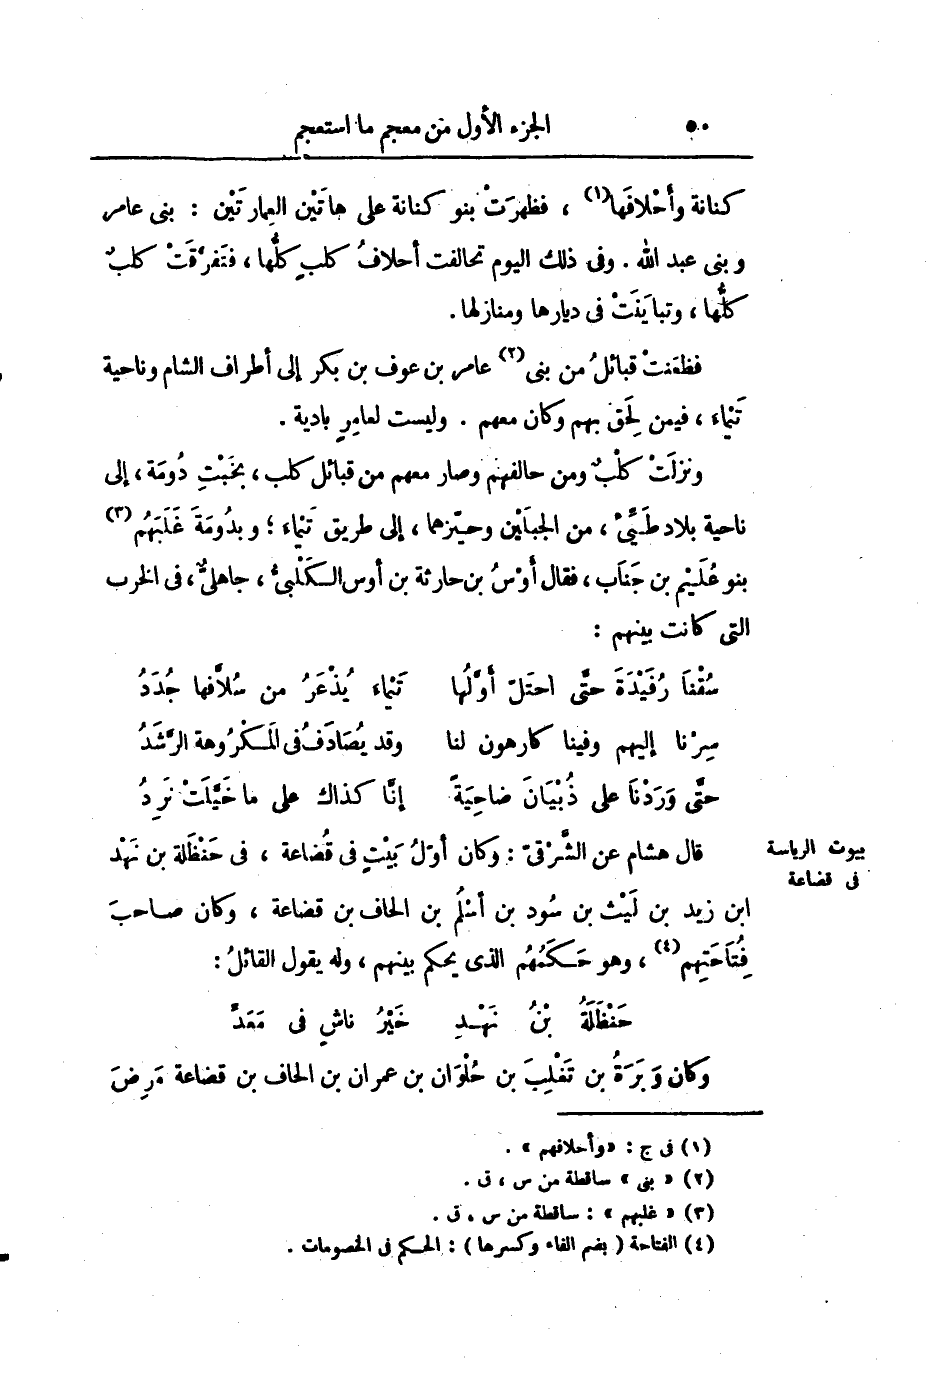 ٥٠
الجزء الأول من معجم ما استعجم
كنانة وأحْلافَها(١) ، فظهرَتْ بنو كنانة على هاتَيْن العِمارتَيْن : بنى عامر
وبنى عبد الله . وفى ذلك اليوم تحالفت أحلافُ كلبٍ كلُّها ، فتَفرَّقَتْ كلبٌ
كلُّها ، وتبايَنَتْ فى ديارها ومنازلها .
فظعَنتْ قبائلُ من بنى(٢) عامر بن عوف بن بكر إلى أطراف الشام وناحية
تَيْماء ، فيمن لَحِق بهم وكان معهم . وليست لعامِرٍ بادية .
ونزلَتْ كلْبٌ ومن حالفهم وصار معهم من قبائل كلب ، بخَبْتِ دُومَة ، إلى
ناحية بلاد طَيِّئ ، من الجبلَيْن وحيّزهما ، إلى طريق تَيْماء ؛ وبدُومَةَ غَلَبَهُم(٣)
بنو عُلَيْم بن جَنَاب ، فقال أوْسُ بن حارثة بن أوس الكَلْبىّ ، جاهلىٌّ ، فى الحرب
التى كانت بينهم :
سُقْنا رُفَيْدَةَ حتَّى احتَلّ أوّلُها تَيْماء يُذْعَرُ من سُلاَّفها جُدَدُ
سِرْنا إليهم وفينا كارهون لنا وقد يُصَادَفُ فى المَكْرُوهة الرَّشَدُ
حتَّى وَرَدْنَا على ذُبْيَانَ ضاحِيَةً إنَّا كذاك على ما خَيَّلَتْ نَرِدُ
بيوت الرياسة
فى قضاعة
قال هشام عن الشَّرْقىّ : وكان أوّلُ بَيْتٍ فى قُضاعة ، فى حَنْظَلة بن نَهْد
ابن زيد بن لَيْث بن سُود بن أسْلُم بن الحاف بن قضاعة ، وكان صاحبَ
فُِتَاحَتِهِم(٤) ، وهو حَكَمُهُم الذى يحكم بينهم ، وله يقول القائلُ :
حَنْظَلَةُ بْنُ نَهْدِ خَيْرُ ناشٍ فى مَعَدّْ
وكان وَبَرَةُ بن تَغْلِبَ بن حُلْوَان بن عمران بن الحاف بن قضاعة مَرِضَ
(١) فى ج : «وأحلافهم» .
(٢) « بنى » ساقطة من س ، ق .
(٣) « غلبهم » : ساقطة من س ، ق .
(٤) الفتاحة ( بضم الفاء وكسرها ) : الحكم فى الخصومات .